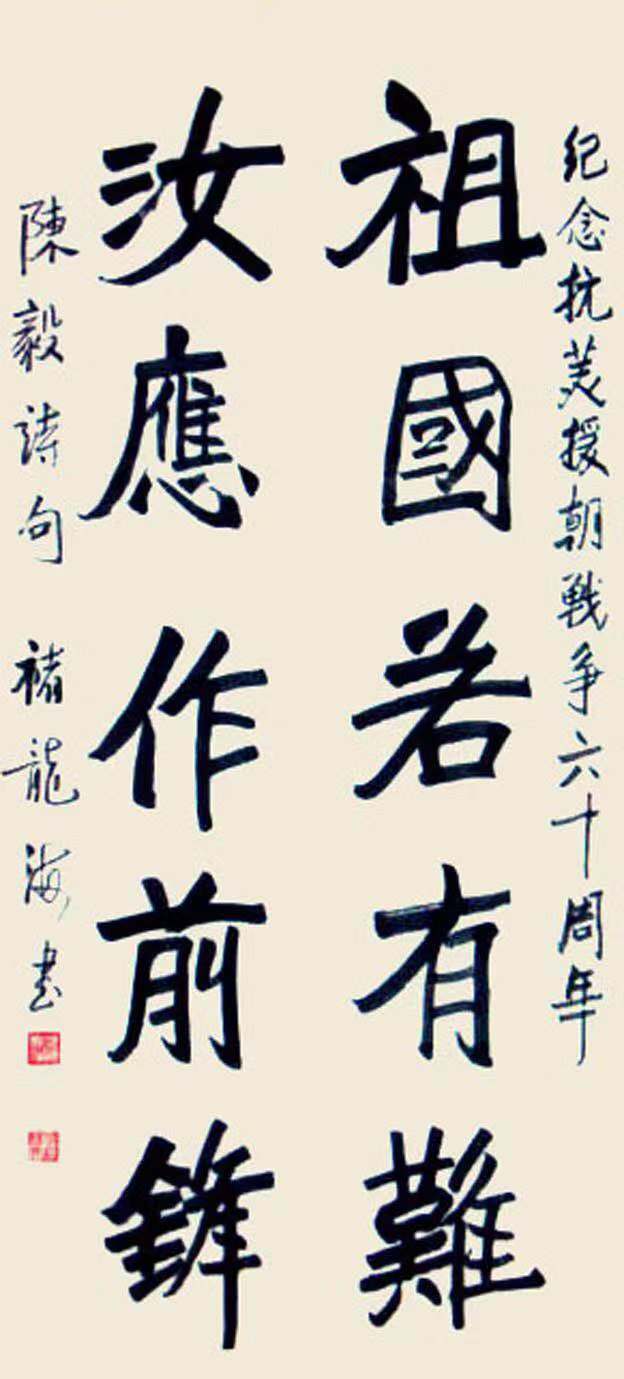 纪念抗美援朝战争六十周年
祖國若有難
汝應作前鋒
陳毅詩句 褚龍海書